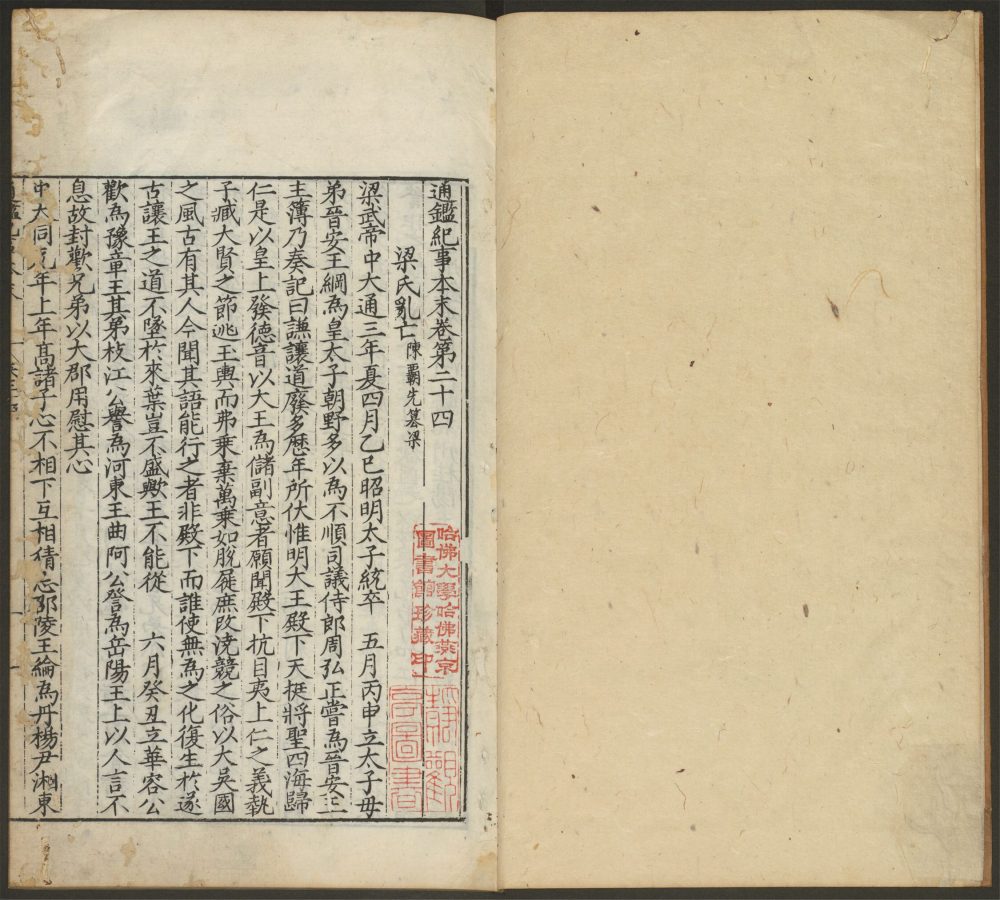 通鑑紀事本末卷第二十四
梁氏亂亡 陳霸先篡梁
梁武帝中大通三年夏四月乙巳昭明太子統卒 五月丙申立太子母
弟晉安王綱為皇太子朝野多以為不順司議侍郎周弘正嘗為晉安王
主簿乃奏記曰謙讓道廢多歷年所伏惟明大王殿下天挺將聖四海歸
仁是以皇上發德音以大王為儲副意者願聞殿下抗目夷上仁之義執
子臧大賢之節逃王輿而弗乘棄萬乘如脫屣庶改澆競之俗以大吳國
之風古有其人今聞其語能行之者非殿下而誰使無為之化復生於遂
古讓王之道不墜於來葉豈不盛歟王不能從 六月癸丑立華容公
歡為豫章王其弟枝江公譽為河東王曲阿公詧為岳陽王上以人言不
息故封歡兄弟以大郡用慰其心
中大同元年上年高諸子心不相下互相猜忌邵陵王綸為丹楊尹湘東
哈佛大學哈佛燕京
圖書館珍藏印